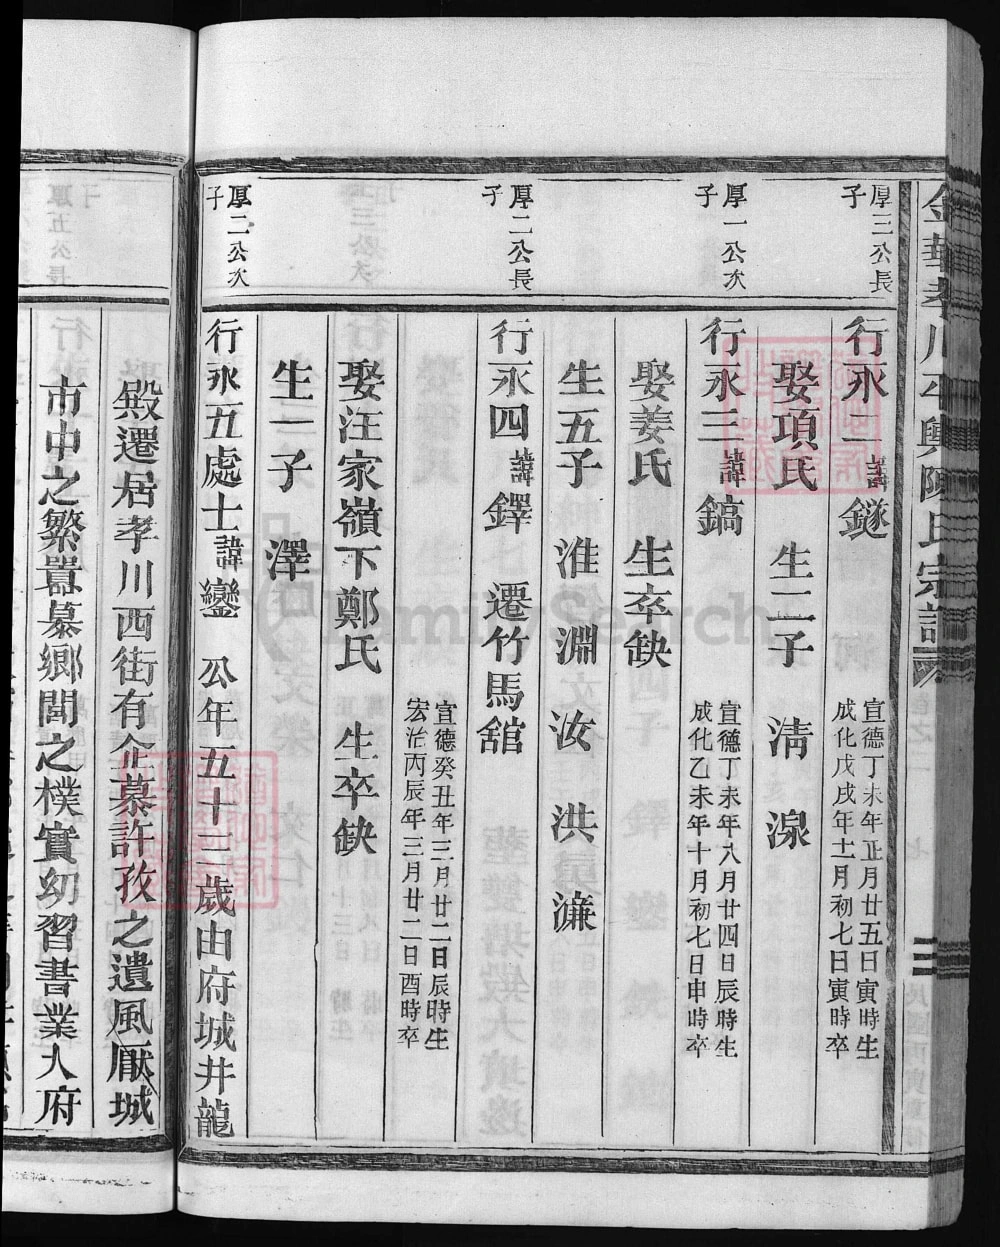 金華孝川
陳氏宗譜
厚三公長子
行永二諱鐩
宣德丁未年正月廿五日寅時生
成化戊戌年十一月初七日寅時卒
娶項氏 生二子 淸 湶
厚一公次子
行永三諱鎬
宣德丁未年八月廿四日辰時生
成化乙未年十月初七日申時卒
娶姜氏 生卒缺
生五子 淮 淵 汝 洪 濂
厚二公長子
行永四諱鐸 遷竹馬舘
宣德癸丑年三月廿二日辰時生
宏治丙辰年三月廿二日酉時卒
娶汪家嶺下鄭氏 生卒缺
生一子 澤
厚二公次子
行永五處士諱鑾 公年五十二歲由府城井龍
殿遷居孝川西街有企慕許孜之遺風厭城
市中之繁囂慕鄉閭之樸實幼習書業入府